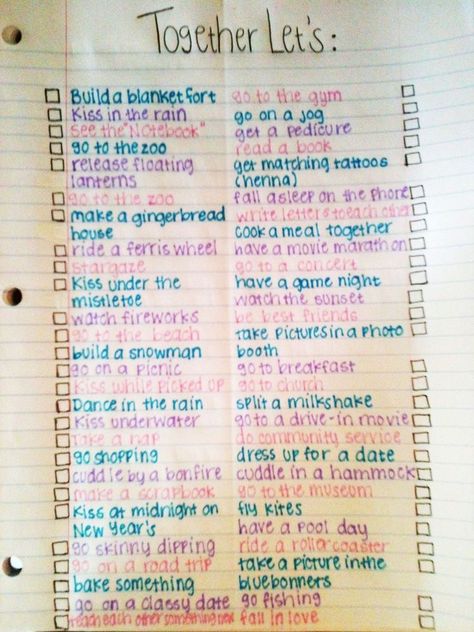 Together Let's:
Build a blanket fort
Kiss in the rain
see the "Notebook"
go to the zoo
release floating
lanterns
go to the zoo
make a gingerbread
house
ride a ferris wheel
stargaze
Kiss under the
mistletoe
watch fireworks
go to the beach
build a snowman
go on a picnic
Kiss while picked up
Dance in the rain
Kiss underwater
take a nap
go shopping
cuddle by a bonfire
make a scrapbook
Kiss at midnight on
New Year's
go skinny dipping
go on a road trip
bake something
go on a classy date
teach each other something new
go to the gym
go on a jog
get a pedicure
read a book
get matching tattoos
(henna)
fall asleep on the phone
write letters to each other
cook a meal together
have a movie marathon
go to a concert
have a game night
watch the sunset
be best friends
take pictures in a photo
booth
go to breakfast
go to church
split a milkshake
go to a drive-in movie
do community service
dress up for a date
cuddle in a hammock
go to the museum
fly kites
have a pool day
ride a roller coaster
take a picture in the
bluebonners
go fishing
fall in love